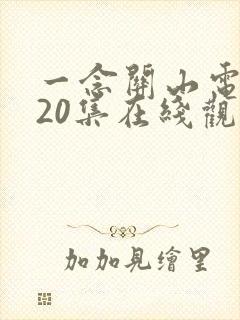 一念關山電
20集在綫觀
加加見繪里